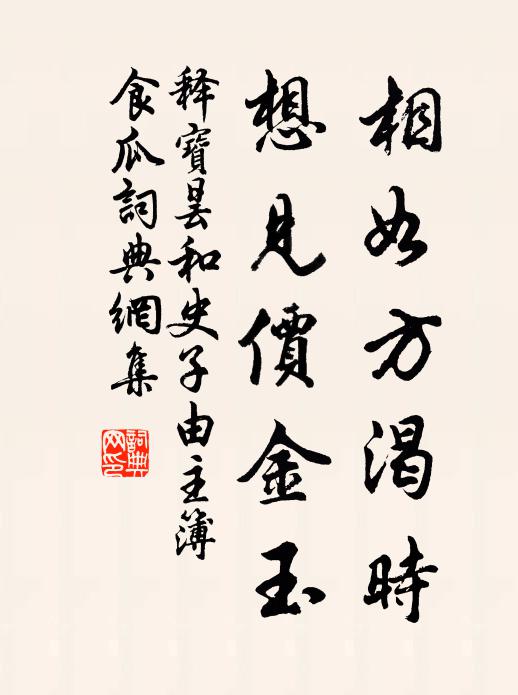 相如方渴時
想見價金玉
釋寶曇和史子由主簿
食瓜詞典網集
詞典
网印